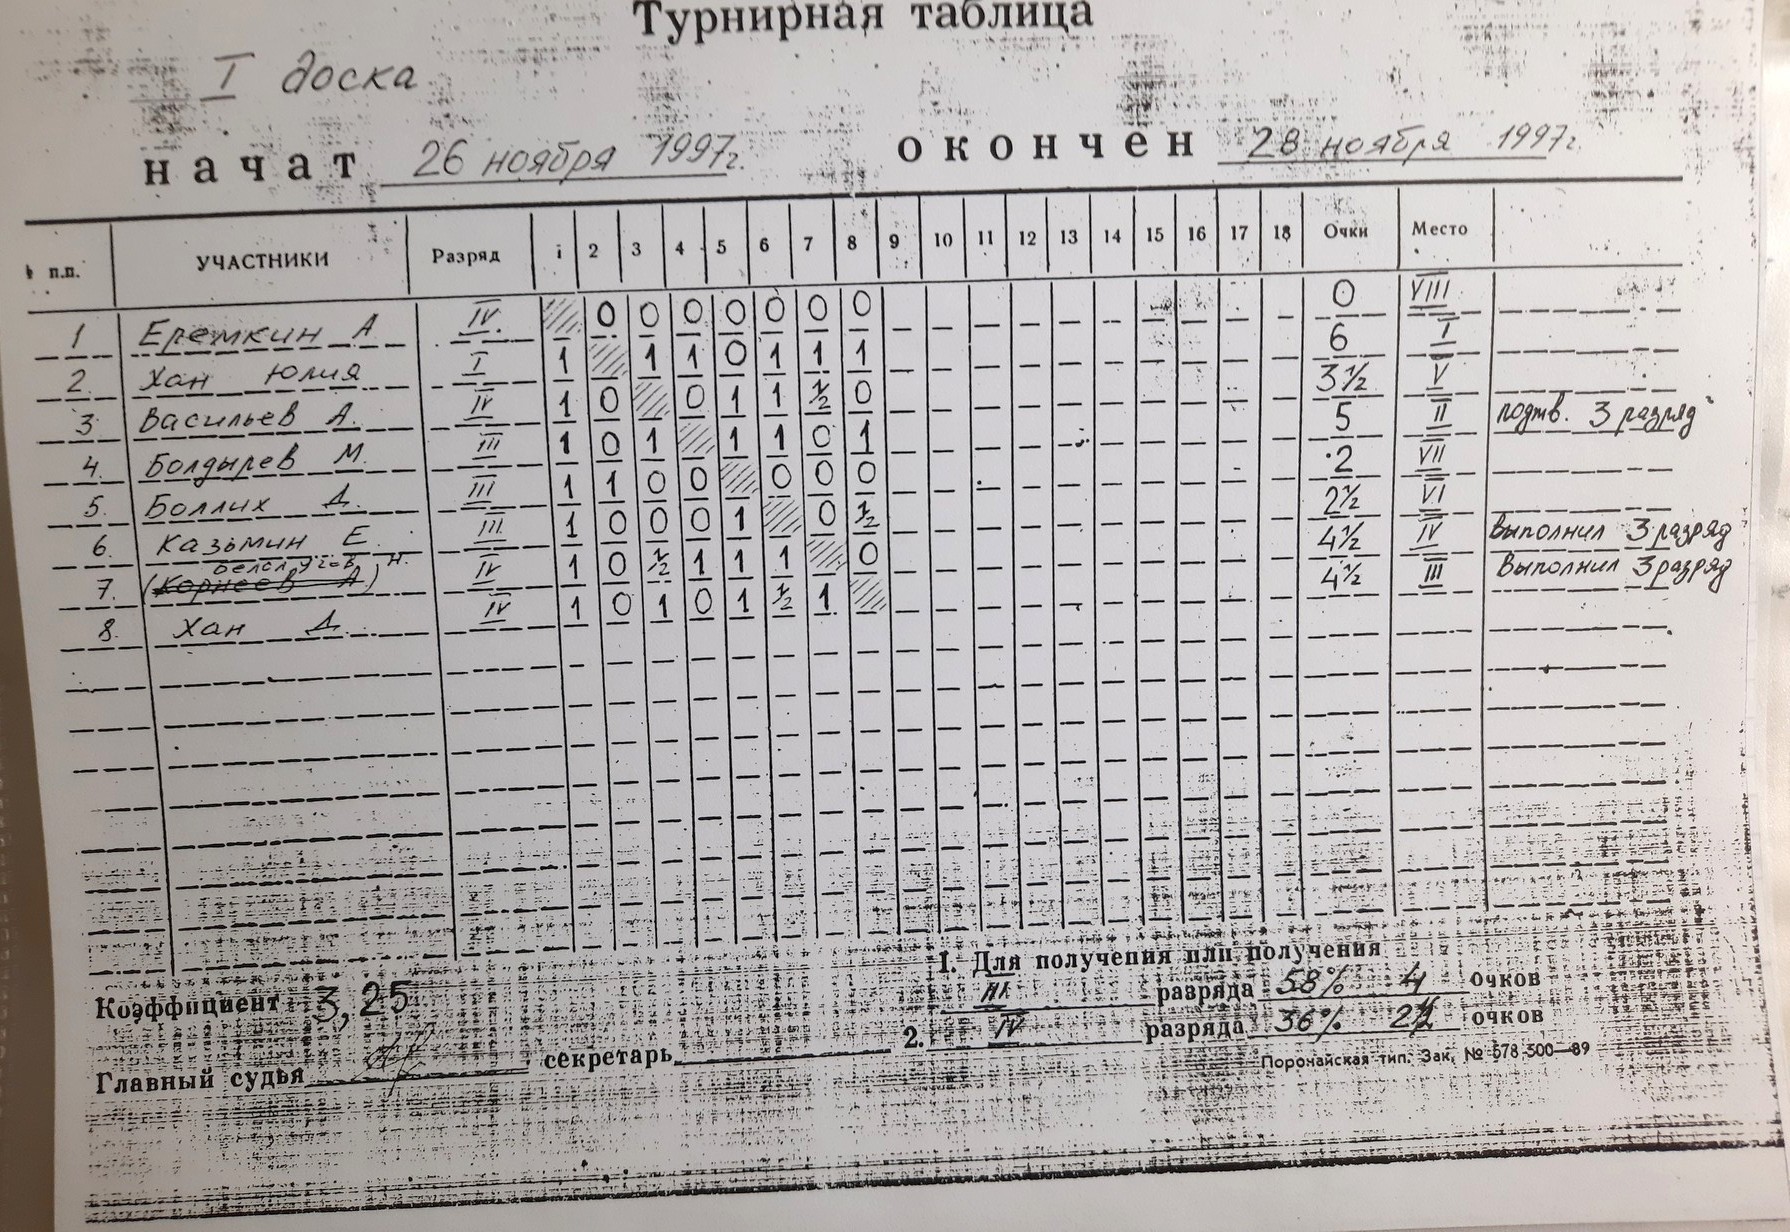 Турнирная таблица
I доска
начат 26 ноября 1997г. окончен 28 ноября 1997г.
п.п. УЧАСТНИКИ Разряд 1 2 3 4 5 6 7 8 9 10 11 12 13 14 15 16 17 18 Очки Место
1 Еремкин А IV 0 0 0 0 0 0 0 0 VIII
2. Хан Юлия I 1 1 1 0 1 1 1 6 I
3 Васильев А. IV 1 0 0 1 1 1/2 0 3 1/2 V
4. Болдырев М. III 1 0 1 1 1 0 1 5 II подтв. 3 разряд
5. Боллих Д. III 1 1 0 0 0 0 0 2 VII
6. Казьмин Е III 1 0 0 0 1 0 1/2 2 1/2 VI
7. (Корнеев А) Н. IV 1 0 1/2 1 1 1 0 4 1/2 IV выполнил 3 разряд
8. Хан Д. IV 1 0 1 0 1 1/2 1 4 1/2 III выполнил 3 разряд
Коэффициент 3,25
1. Для получения или получения
III разряда 58% 4 очков
2. IV разряда 36% очков
Главный судья секретарь
Поронайская тип. Зак. № 578 500—89